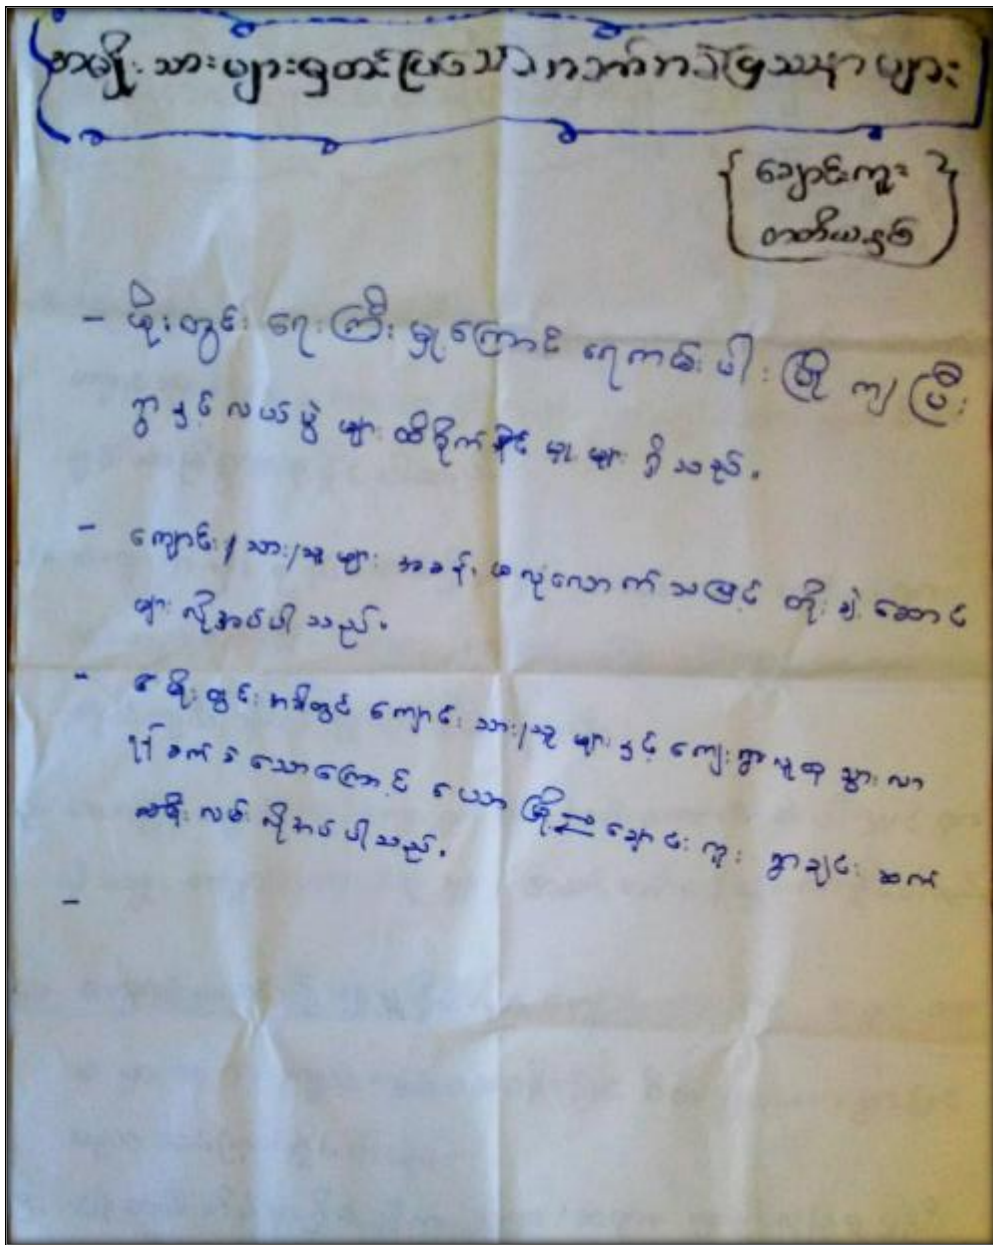 အမျိုးသားများမှတင်ပြသော အခက်အခဲပြဿနာများ
ချောင်းကူး
တတိယနှစ်
- မိုးတွင်း ရေကြီးမှုကြောင့် ရေကမ်းပါးပြို ကျပြီး
ရွာနှင့် လယ်မြေများ ထိခိုက်နိုင်မှုများ ရှိသည်။
- ကျောင်း/သား/သူများ အခန်း မလုံလောက်သဖြင့် တိုးချဲ့ဆောင်
များ လိုအပ်ပါသည်။
- မိုးတွင်းအခါတွင် ကျောင်းသား/သူများနှင့် ကျေးရွာလူထု သွားလာ
ခက်ခဲသောကြောင့် ချောင်းကူး ရွာချင်းဆက်
လမ်း လိုအပ်ပါသည်။
-